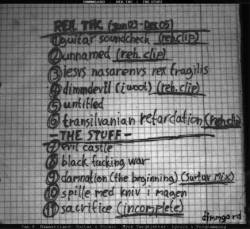 REH. TRK (Jun 03 - Dec 05)
1 guitar soundcheck (reh. clip)
2 unnamed (reh. clip)
3 iesvs nasarenvs rex fragilis
4 dimmdevil (reh. clip)
5 untitled
6 transilvanian retardation (reh. clip)
- THE STUFF -
7 evil castle
8 black fucking war
9 damnation (the beginning) (Surtur mix)
10 spille med kniv i magen
11 sacrifice (incomplete)
dimngard